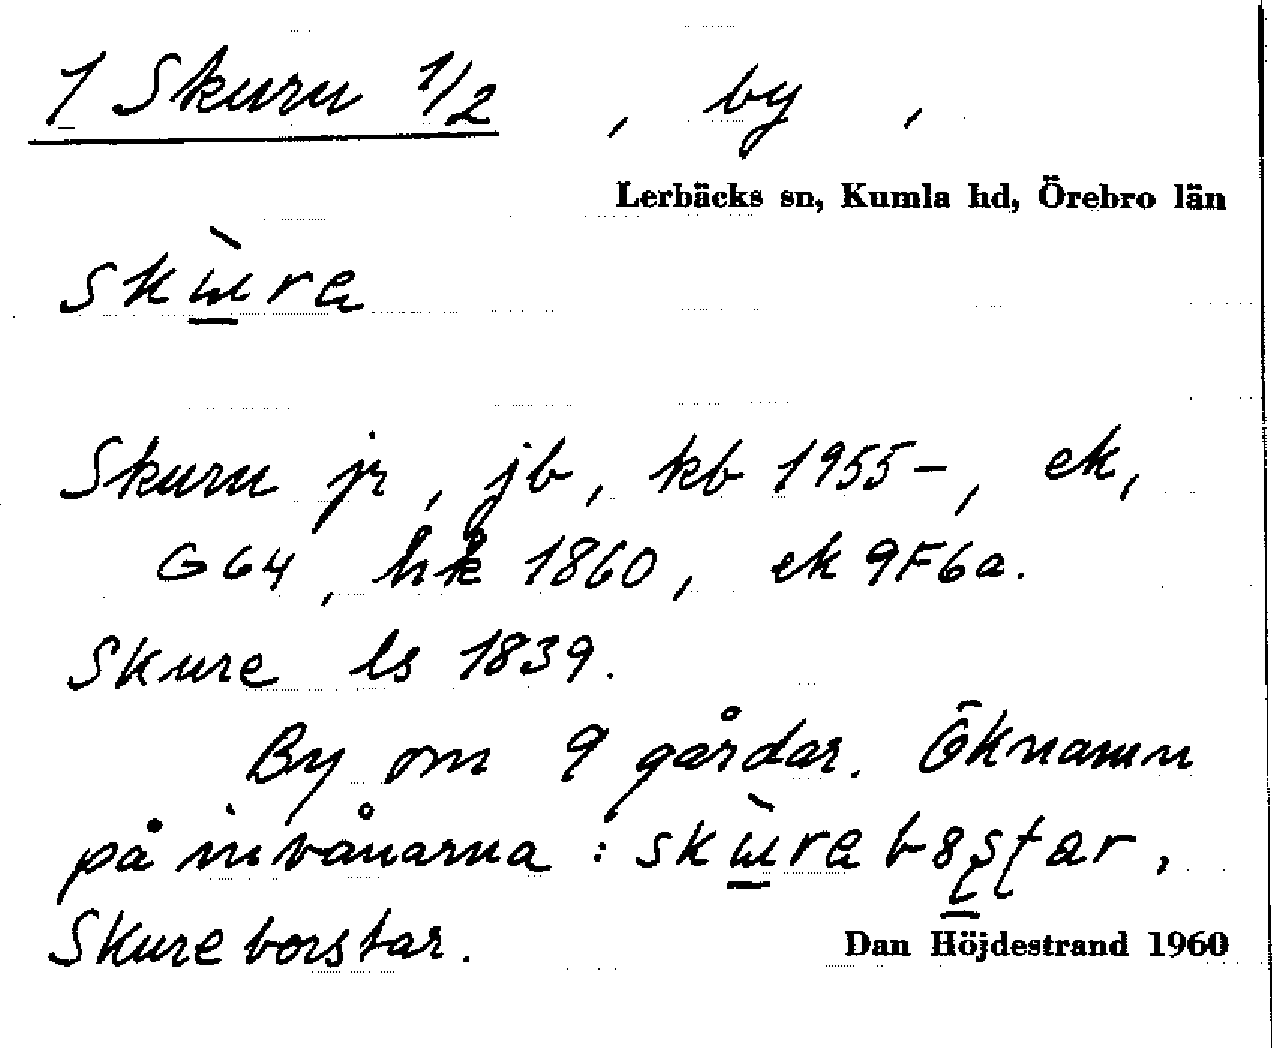 1 Skuru 1/2 , by ,
Lerbäcks sn, Kumla hd, Örebro län
skɯ̀ra
Skuru jr, jb, kb 1955-, ek,
G64, hk 1860, ek 9F6a.
Skure ls 1839.
By om 9 gårdar. Öknamn
på invånarna : skɯ̀rab8ʂʈar,
Skureborstar.
Dan Höjdestrand 1960